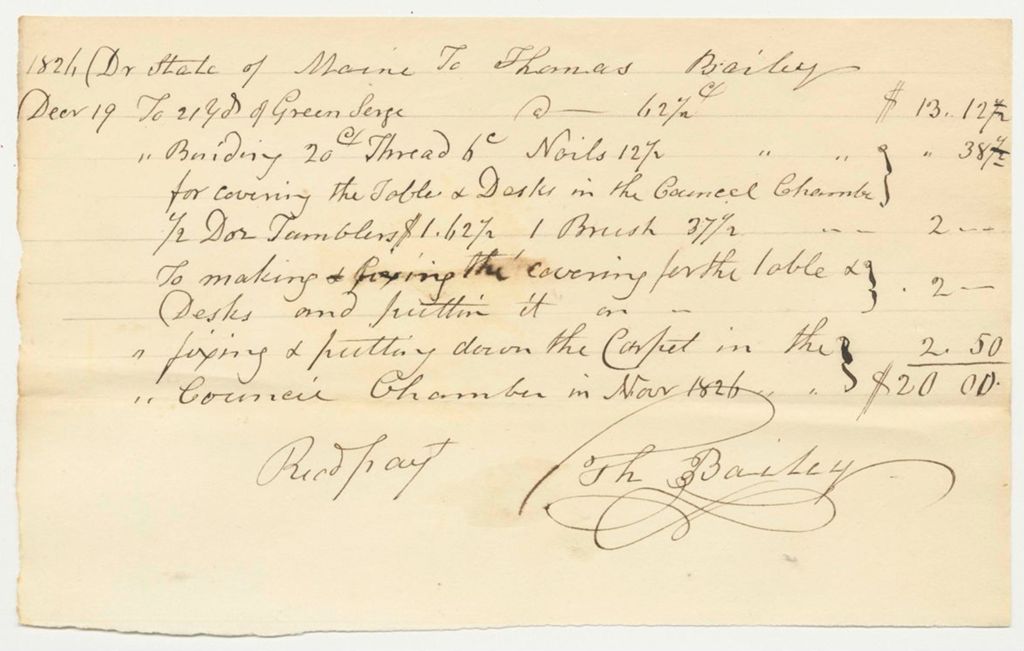 1826 (Dr State of Maine To Thomas Bailey
Decr 19 To 21 Yds of Green Serge @ — 62½ ct $ 13. 12½
" Binding 20 ct Thread 6 c Nails 12½ " " " 38½
for covering the Table & Desks in the Council Chamber
½ Doz Tumblers $1.62½ 1 Brush 37½ " " 2 --
To making & fixing the covering for the table &
Desks and puttin it on " . 2 —
" fixing & putting down the Carpet in the 2. 50
" Council Chamber in Novr 1826 " " $20 00.
Recd payt
Th Bailey